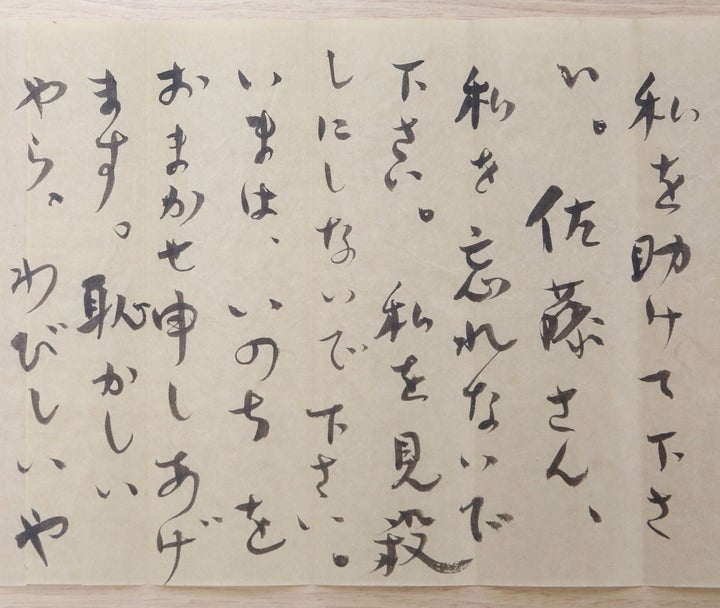 私を助けて下さ
い。佐藤さん、
私を忘れないで
下さい。私を見殺
しにしないで下さい。
いまは、いのちを
おまかせ申しあげ
ます。恥かしい
やら、わびしいや